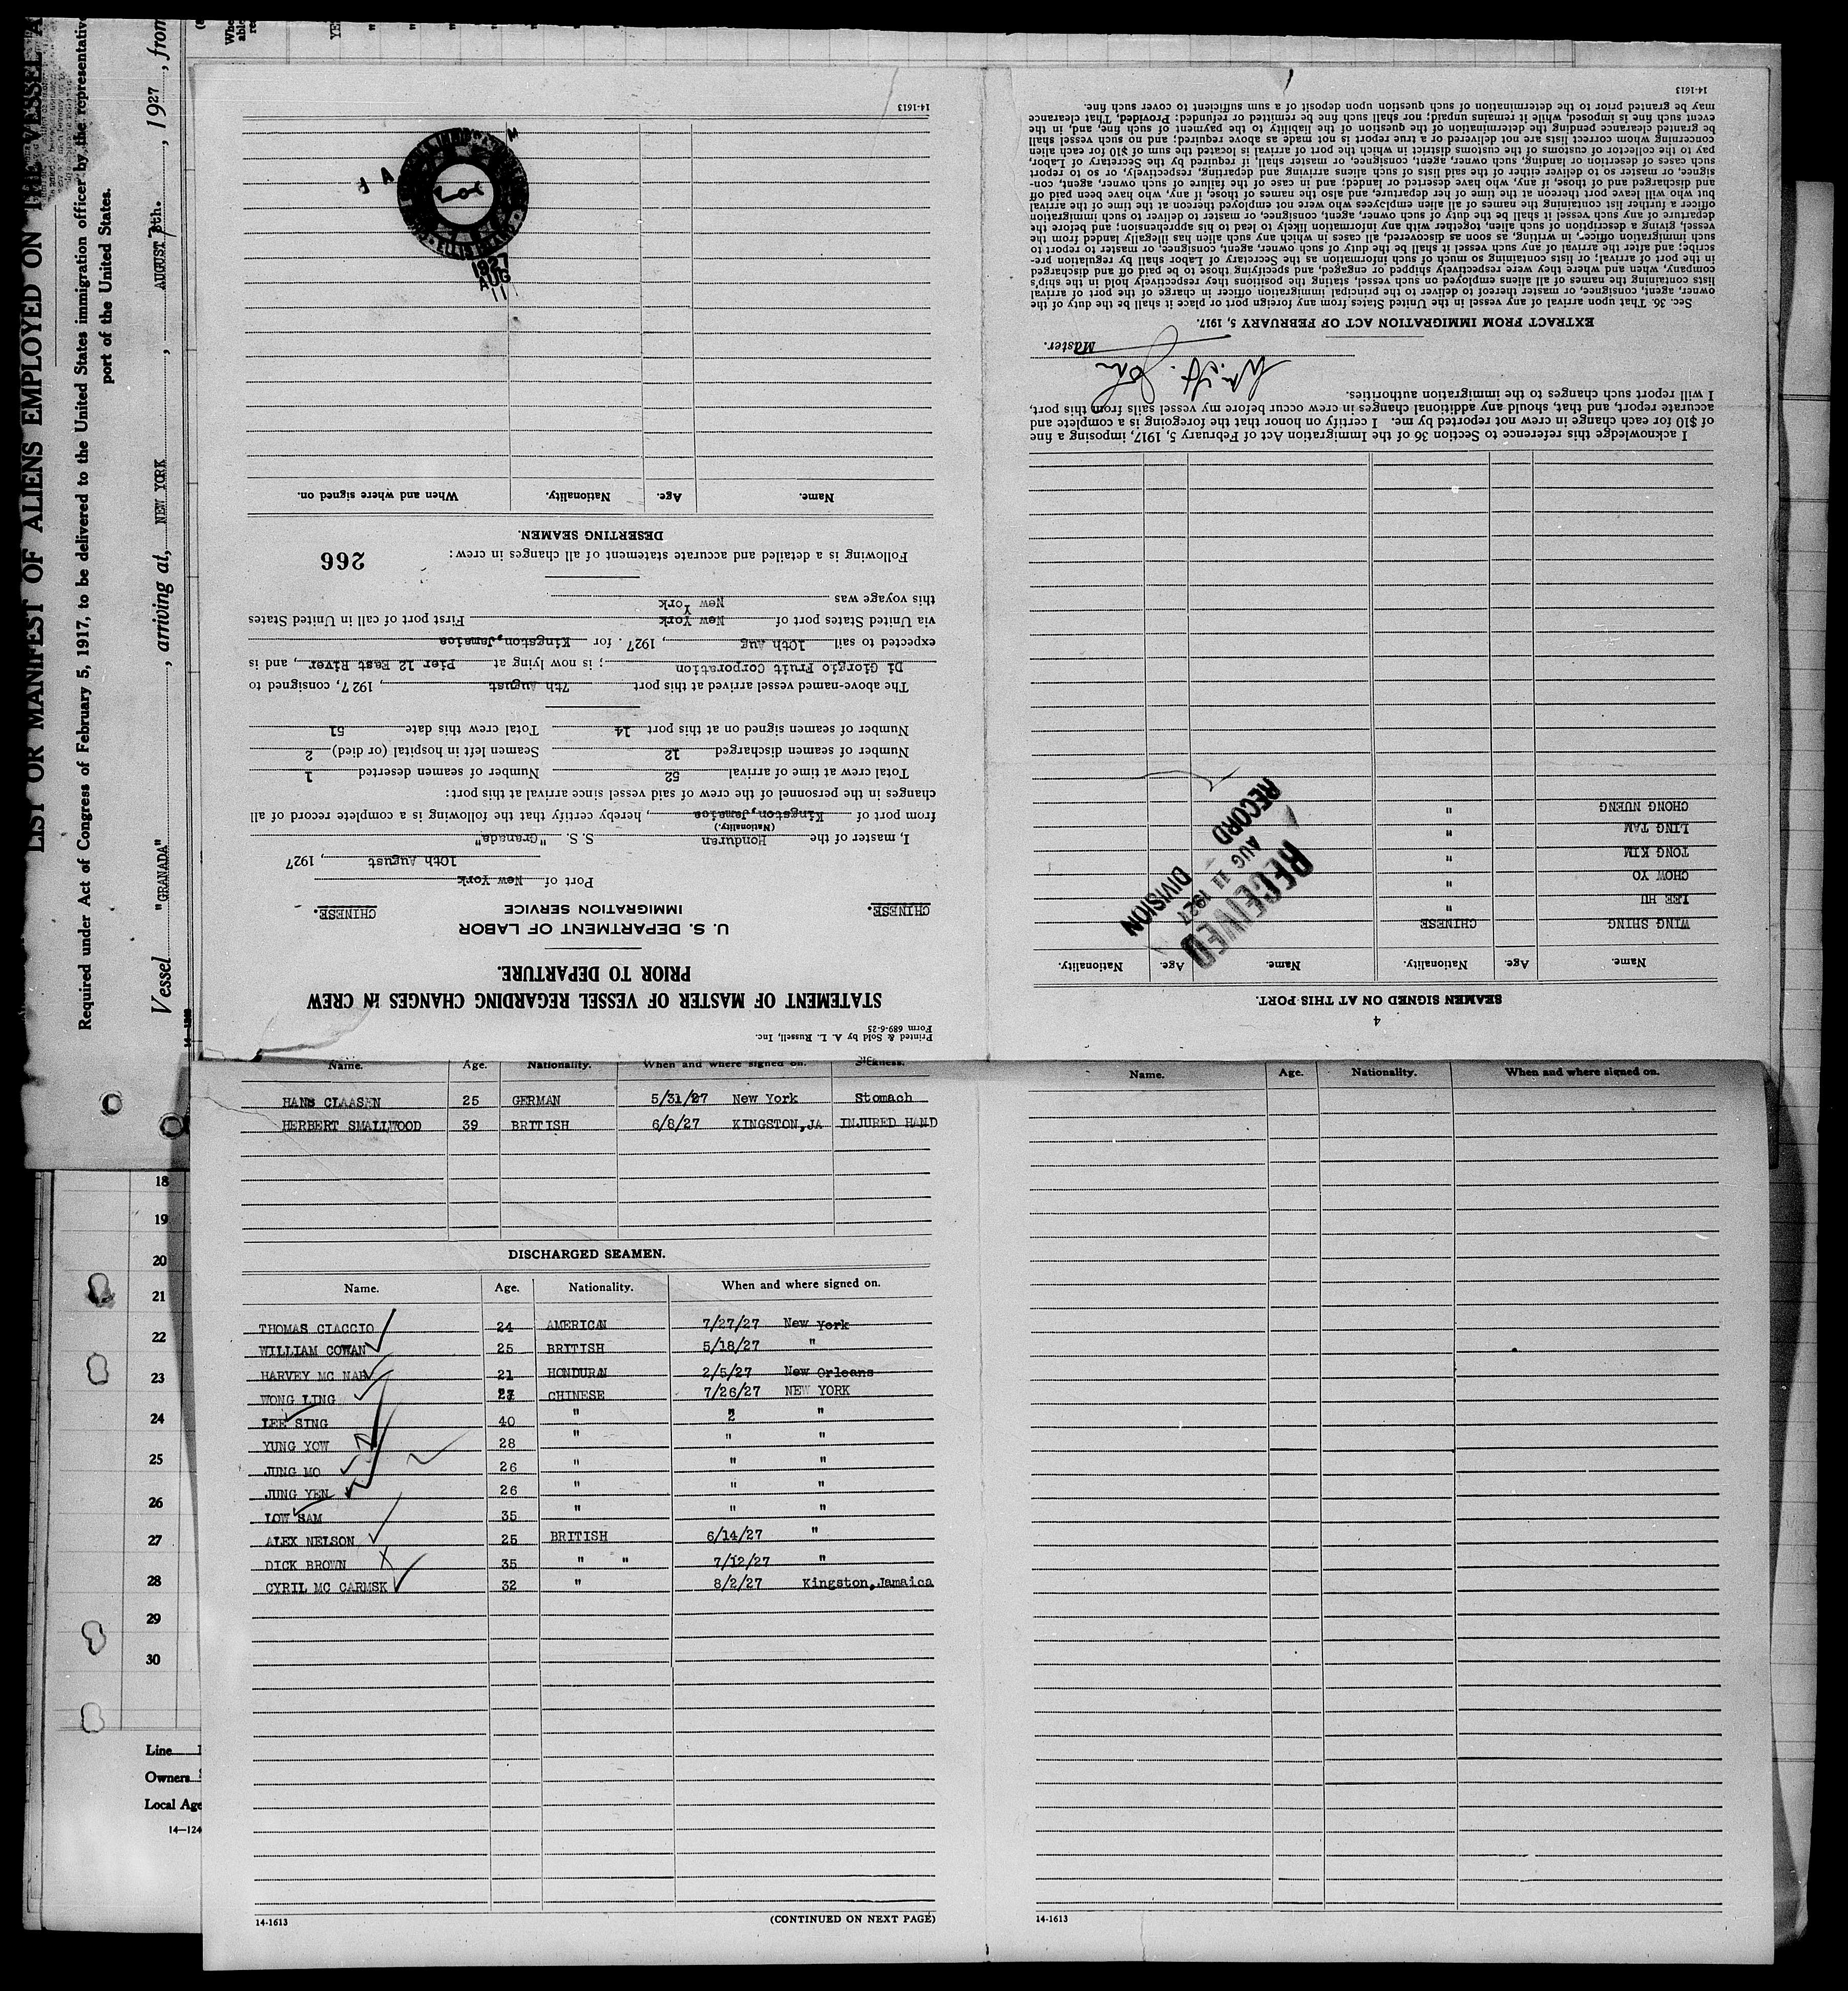 LIST OR MANIFEST OF ALIENS EMPLOYED ON THE VESSEL A
Required under Act of Congress of February 5, 1917, to be delivered to the United States immigration officer by the representative
port of the United States.
Vessel "GRANADA", arriving at, NEW YORK, AUGUST 7th., 1927, from
14-1240
18
19
20
21
22
23
24
25
26
27
28
29
30
Line
Owners
Local Age
14—124
Printed & Sold by A. L. Russell, Inc.
Form 689-6-25
STATEMENT OF MASTER OF VESSEL REGARDING CHANGES IN CREW
PRIOR TO DEPARTURE.
U. S. DEPARTMENT OF LABOR
CHINESE. IMMIGRATION SERVICE CHINESE.
Port of New York
10th August, 1927
I, master of the Honduran S. S. "Granada"
(Nationality.)
from port of Kingston, Jamaica, hereby certify that the following is a complete record of all
changes in the personnel of the crew of said vessel since arrival at this port:
Total crew at time of arrival 52 Number of seamen deserted 1
Number of seamen discharged 12 Seamen left in hospital (or died) 2
Number of seamen signed on at this port 14 Total crew this date 51
The above-named vessel arrived at this port 7th August, 1927, consigned to
Di Giorgio Fruit Corporation; is now lying at Pier 12 East River, and is
expected to sail 10th Aug, 1927. for Kingston, Jamaica
via United States port of New York First port of call in United States
this voyage was New York
Following is a detailed and accurate statement of all changes in crew: 266
DESERTING SEAMEN.
Name. Age. Nationality. When and where signed on.
11
AUG
1927
ELLIS ISLAND
14-1613
4
SEAMEN SIGNED ON AT THIS PORT.
Name. Age. Nationality. Name. Age. Nationality.
WING SHING CHINESE
LEE HU "
CHOW YO "
TONG KIM "
LING TAM "
CHONG NUENG "
RECEIVED
AUG 11 1927
RECORD DIVISION
I acknowledge this reference to Section 36 of the Immigration Act of February 5, 1917, imposing a fine
of $10 for each change in crew not reported by me. I certify on honor that the foregoing is a complete and
accurate report, and that, should any additional changes in crew occur before my vessel sails from this port,
I will report such changes to the immigration authorities.
Master.
EXTRACT FROM IMMIGRATION ACT OF FEBRUARY 5, 1917.
Sec. 36. That upon arrival of any vessel in the United States from any foreign port or place it shall be the duty of the
owner, agent, consignee, or master thereof to deliver to the principal immigration officer in charge of the port of arrival
lists containing the names of all aliens employed on such vessel, stating the positions they respectively hold in the ship's
company, when and where they were respectively shipped or engaged, and specifying those to be paid off and discharged
in the port of arrival; or lists containing so much of such information as the Secretary of Labor shall by regulation pre-
scribe; and after the arrival of any such vessel it shall be the duty of such owner, agent, consignee, or master to report to
such immigration officer, in writing, as soon as discovered, all cases in which any such alien has illegally landed from the
vessel, giving a description of such alien, together with any information likely to lead to his apprehension; and before the
departure of any such vessel it shall be the duty of such owner, agent, consignee, or master to deliver to such immigration
officer a further list containing the names of all alien employees who were not employed thereon at the time of the arrival
but who will leave port thereon at the time of her departure, and also the names of those, if any, who have been paid off
and discharged and of those, if any, who have deserted or landed; and in case of the failure of such owner, agent, con-
signee, or master so to deliver either of the said lists of such aliens arriving and departing, respectively, or so to report
such cases of desertion or landing, such owner, agent, consignee, or master shall, if required by the Secretary of Labor,
pay to the collector of customs of the customs district in which the port of arrival is located the sum of $10 for each alien
concerning whom correct lists are not delivered or a true report is not made as above required; and no such vessel shall
be granted clearance pending the determination of the question of the liability to the payment of such fine, and, in the
event such fine is imposed, while it remains unpaid; nor shall such fine be remitted or refunded: Provided, That clearance
may be granted prior to the determination of such question upon deposit of a sum sufficient to cover such fine.
14-1613
Name. Age. Nationality. When and where signed on. Sickness.
HANS CLAASEN 25 GERMAN 5/31/27 New York Stomach
HERBERT SMALLWOOD 39 BRITISH 6/8/27 KINGSTON,JA INJURED HAND
DISCHARGED SEAMEN.
Name. Age. Nationality. When and where signed on.
THOMAS CIACCIO 24 AMERICAN 7/27/27 New York
WILLIAM COWAN 25 BRITISH 5/18/27 "
HARVEY MC NAB 21 HONDURAN 2/5/27 New Orleans
WONG LING CHINESE 7/26/27 NEW YORK
LEE SING 40 " " "
YUNG YOW 28 " " "
JUNG MO 26 " " "
JUNG YEN 26 " " "
LOW SAM 35 " " "
ALEX NELSON 25 BRITISH 6/14/27 "
DICK BROWN 35 " " 7/12/27 "
CYRIL MC CARMSK 32 " 8/2/27 Kingston,Jamaica
14-1613 (CONTINUED ON NEXT PAGE)
Name. Age. Nationality. When and where signed on.
14-1613